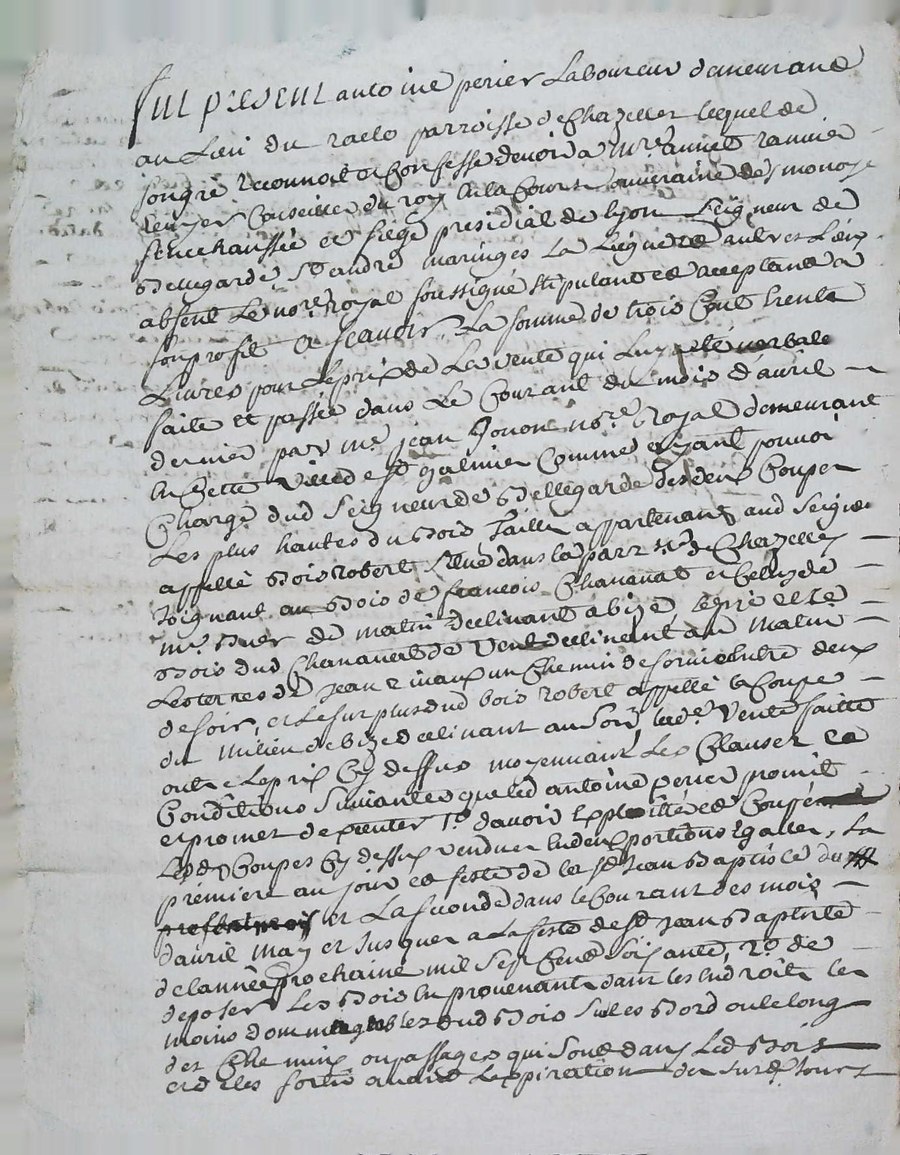 fut present antoine perier Laboureur demeurant
au Lieu du racle parroisse de Chazelles lequel de
son gré reconnoit et Confesse devoir a Mre annet ranvier
Ecuyer Conseiller du roy En la Cour Souveraine des monoyes
senechaussée et siege presidial de lyon Seigneur de
Bellegarde St andré maringes La Liegue et autres Lieux
absent Le nore royal soussigné stipulant et acceptant a
son profit a scavoir La somme de trois Cent trente
Livres pour Le prix de La vente qui Luy a été verbale
faite et passée dans Le Courant du mois d'avril
dernier par me jean Jonon nore Royal demeurant
En Cette ville de st galmier Comme ayant pouvoir
Charge dud Seigneur de Bellegarde des deux Coupes
Les plus hautes du Bois Taillis appartenant aud Seigneur
appellé Bois robert Situé dans la parrsse de Chazelles
Joignant au Bois de francois Chanavat et Celuy de
mr de matin declinant a bize, Le pré et Le
Bois dud Chanavat de Vent declinant au matin
Les terres de Jean un Chemin de service Entre deux
de soir, et Le surplus dud bois robert appellé la Coupe
du milieu de bize declinant au soir, lade Vente faitte
outre Le prix Cy dessus moyennant Les Clauses et
Conditions suivantes que led antoine perier promit
et promet d'executer 1o d'avoir Exploitté et Coupé
Lesd Coupes Cy dessus vendues En deux portions Egalles, La
premiere au jour et feste de la st Jean Baptiste du
et La seconde dans le Courant des mois
d'avril may et Jusques a La feste de st Jean Baptiste
de l'année prochaine mil Sept Cent soixante, 2o de
deposer Les Bois En provenant dans les Endroits les
moins dommageables dud Bois Sur les Bord ou le long
des Chemins ou passages qui sont dans Led Bois
et d'Les sortir avant L'expiration du susd Jour